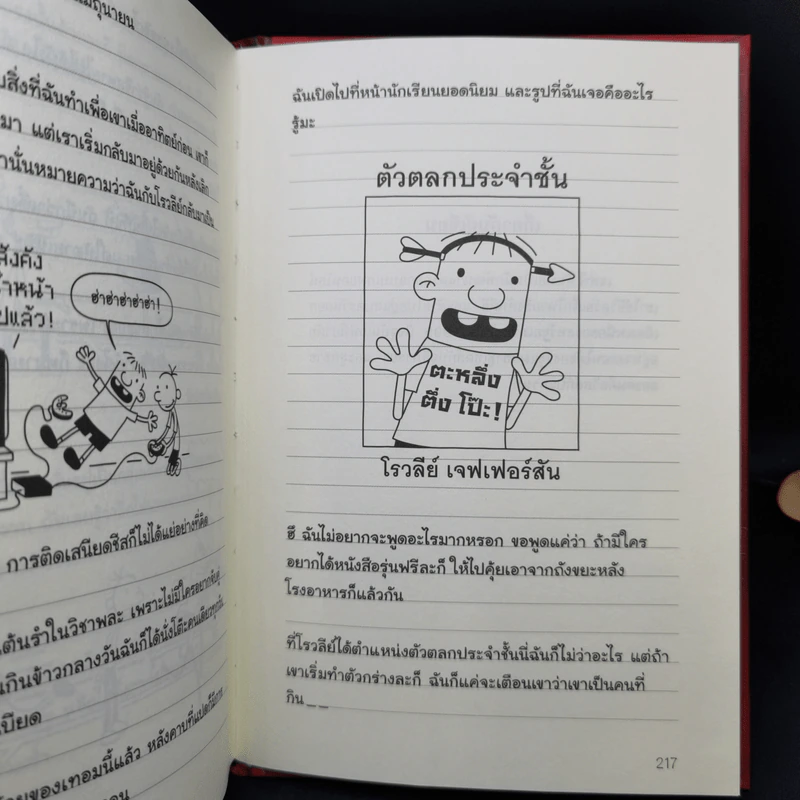 มิถุนายน
บสิ่งที่ฉันทำเพื่อเขาเมื่ออาทิตย์ก่อน เขาก็
มา แต่เราเริ่มกลับมาอยู่ด้วยกันหลังเลิก
านั่นหมายความว่าฉันกับโรวลีย์กลับมาเป็น
สังคัง
หน้า
ปแล้ว!
ฮ่าฮ่าฮ่าฮ่าฮ่า!
การติดเสนียดชีสก็ไม่ได้แย่อย่างที่คิด
เต้นรำในวิชาพละ เพราะไม่มีใครอยากจับคู่
นกินข้าวกลางวันฉันก็ได้นั่งโต๊ะคนเดียวทุกวัน
เบียด
ยของเทอมนี้แล้ว หลังคาบที่แปดก็มีการ
ฉันเปิดไปที่หน้านักเรียนยอดนิยม และรูปที่ฉันเจอคืออะไร
รู้มะ
ตัวตลกประจำชั้น
ตะหลึ่ง
ตึ่ง โป๊ะ!
โรวลีย์ เจฟเฟอร์สัน
ฮึ ฉันไม่อยากจะพูดอะไรมากหรอก ขอพูดแค่ว่า ถ้ามีใคร
อยากได้หนังสือรุ่นฟรีละก็ ให้ไปคุ้ยเอาจากถังขยะหลัง
โรงอาหารก็แล้วกัน
ที่โรวลีย์ได้ตำแหน่งตัวตลกประจำชั้นนี่ฉันก็ไม่ว่าอะไร แต่ถ้า
เขาเริ่มทำตัวกร่างละก็ ฉันก็แค่จะเตือนเขาว่าเขาเป็นคนที่
กิน _ _
217